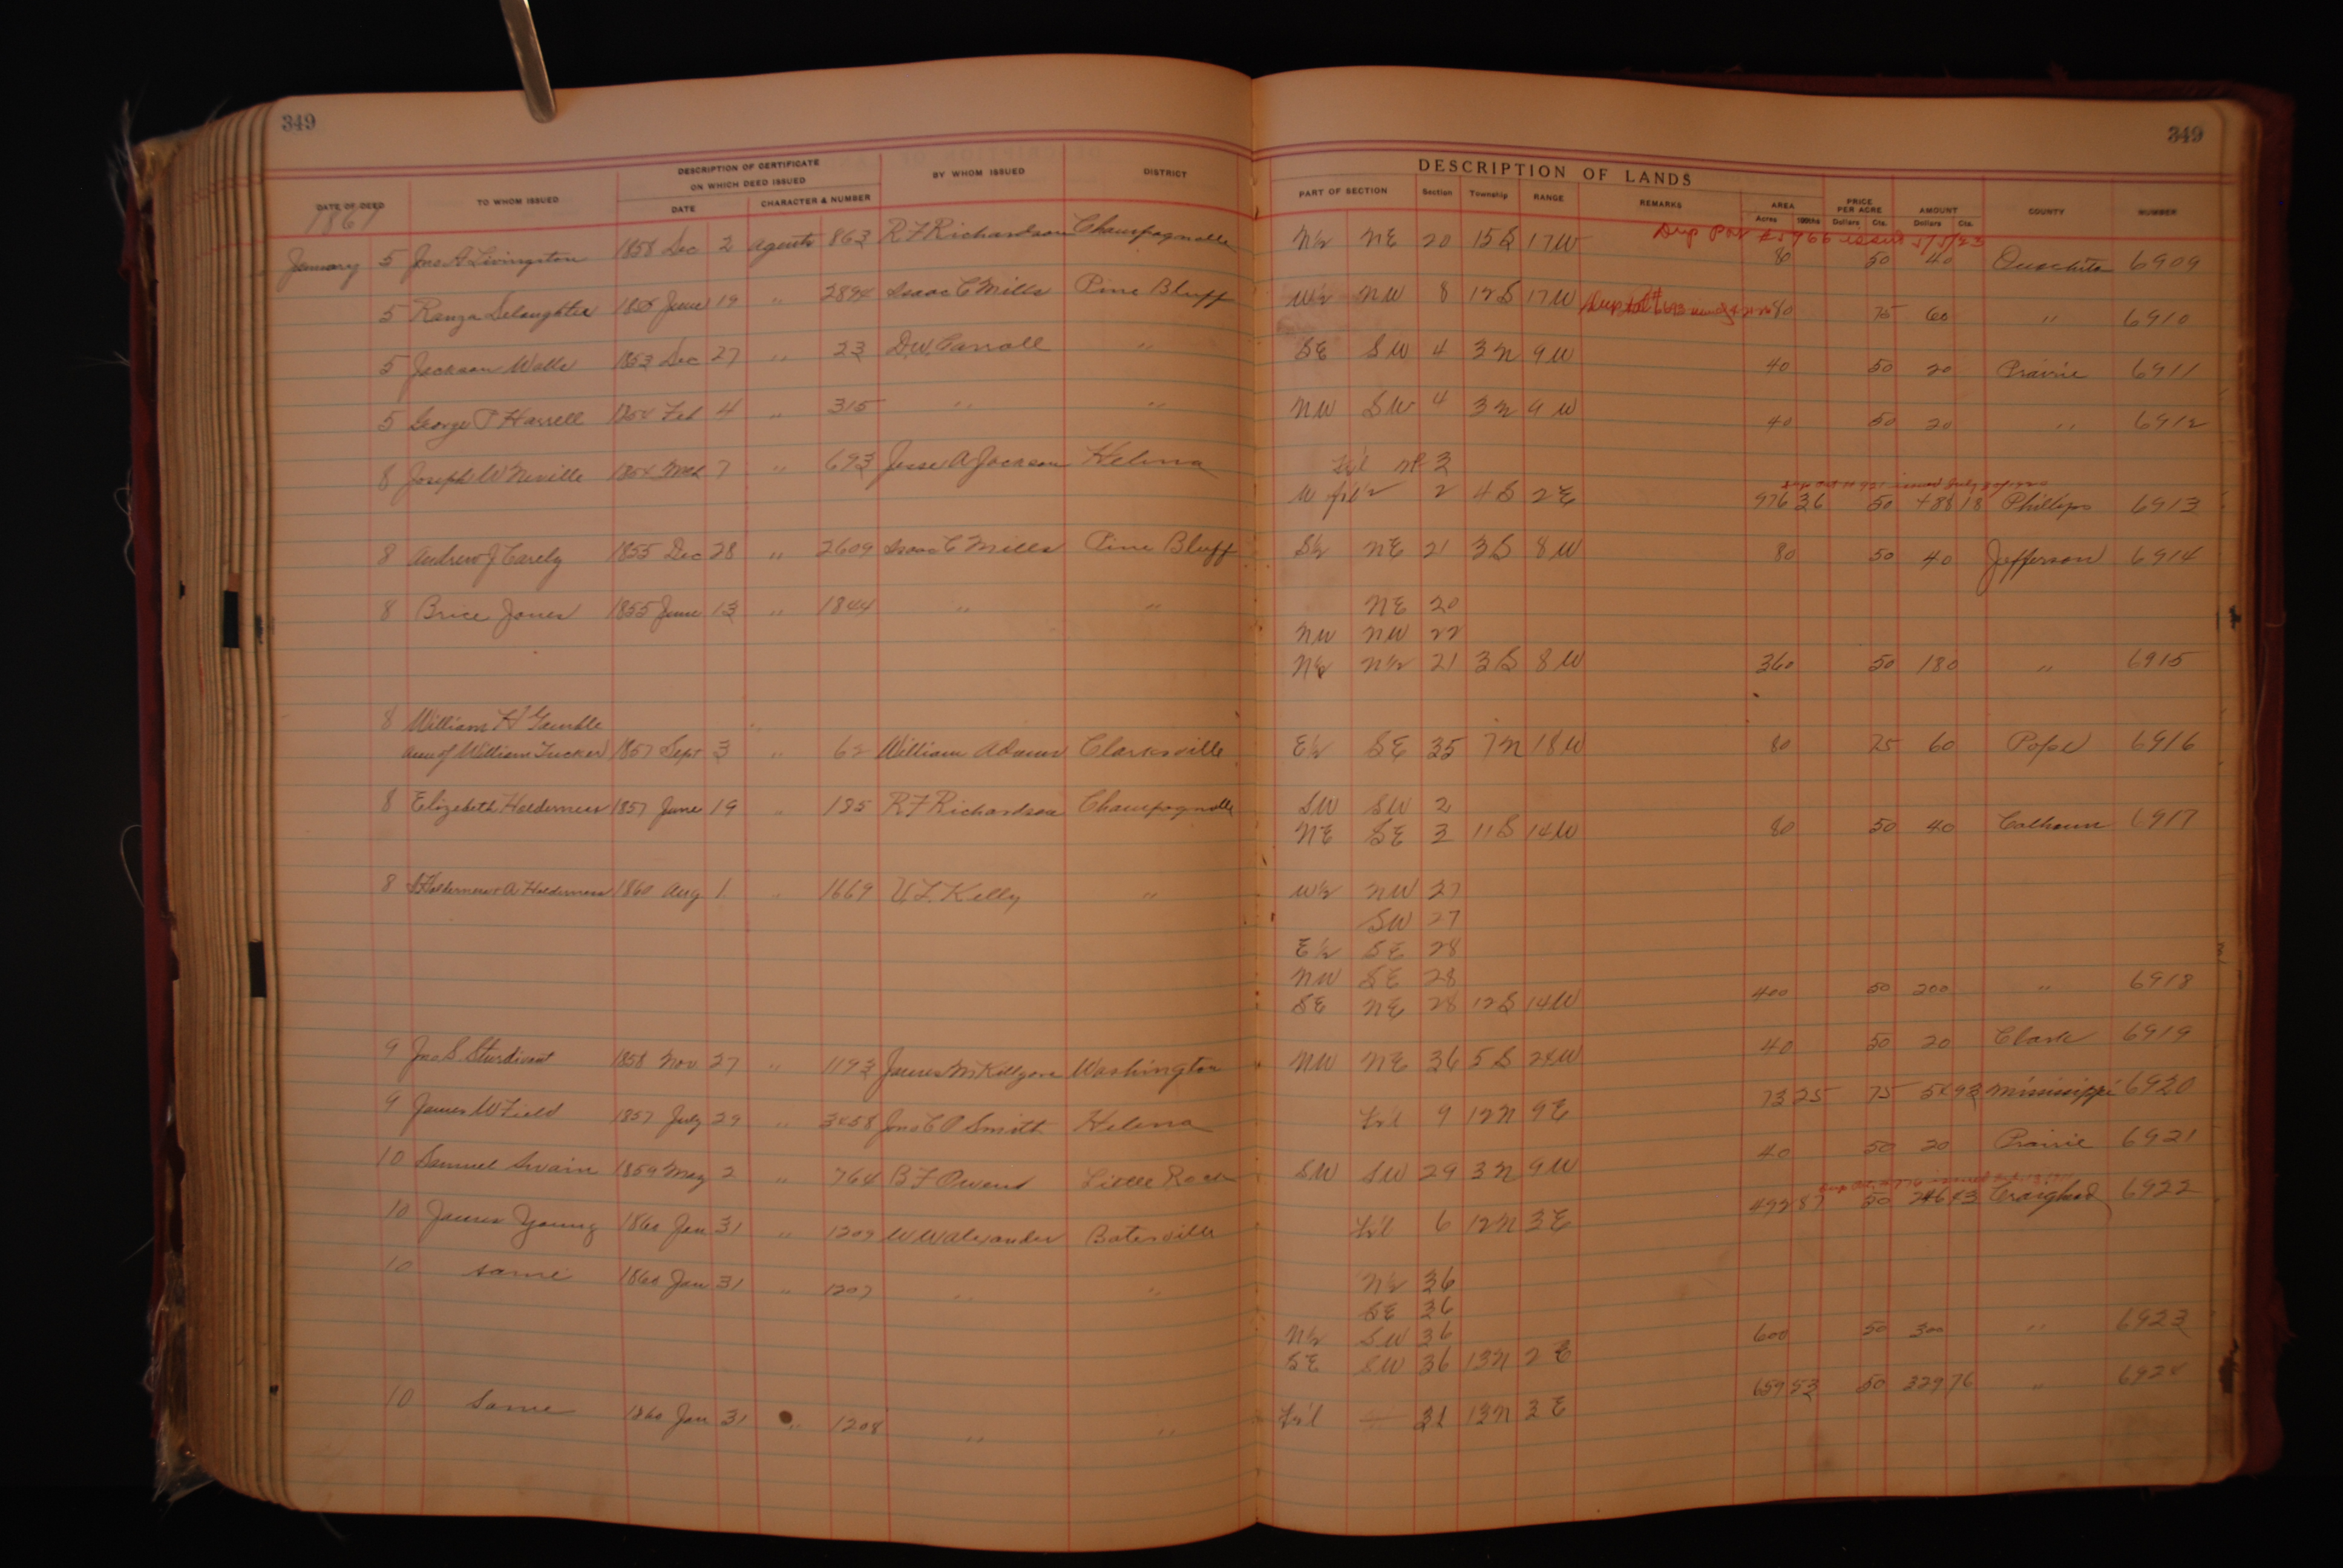 349
349
DATE OF DEED
TO WHOM ISSUED
DESCRIPTION OF CERTIFICATE
ON WHICH DEED ISSUED
DATE
CHARACTER & NUMBER
BY WHOM ISSUED
DISTRICT
DESCRIPTION OF LANDS
PART OF SECTION
Section
Township
RANGE
REMARKS
AREA
Acres 100ths
PRICE
PER ACRE
Dollars Cts.
AMOUNT
Dollars Cts.
COUNTY
NUMBER
1861
January 5 Jno A Livingston 1858 Dec 2 Agents 863 R F Richardson Champagnolle N½ NE 20 15 S 17 W 80 50 40 Ouachita 6909
5 Ranza Delaughter June 19 " 2894 Isaac C Mills Pine Bluff W½ NW 8 12 S 17 W 80 75 60 " 6910
5 Jackson Walls 1853 Dec 27 " 23 D.W. Carroll " SE SW 4 3 N 9 W 40 50 20 Prairie 6911
5 George P Harrell Feb 4 " 315 " " NW SW 4 3 N 9 W 40 50 20 " 6912
8 Joseph W Neville Mch 7 " 693 Jesse A Jackson Helena
W fr'l ½ 2 4 S 2 E 976 36 50 488 18 Phillips 6913
8 Andrew J Carely 1855 Dec 28 " 2609 Isaac C Mills Pine Bluff S½ NE 21 3 S 8 W 80 50 40 Jefferson 6914
8 Brice Jones 1855 June 13 " 1844 " " NE 20
NW NW 22
N½ N½ 21 3 S 8 W 360 50 180 " 6915
8 William H Gamble
William Tucker 1857 Sept 3 " 62 William Adams Clarksville E½ SE 35 7 N 18 W 80 75 60 Pope 6916
8 Elizabeth Holderness 1857 June 19 " 185 R F Richardson Champagnolle SW SW 2
NE SE 3 11 S 14 W 80 50 40 Calhoun 6917
8 Holderness & A Holderness 1860 Aug 1 " 1669 Kelly " W½ NW 27
SW 27
E½ SE 28
NW SE 28
SE NE 28 12 S 14 W 400 50 200 " 6918
9 Jno S Sturdivant 1858 Nov 27 " 1193 James M Killgore Washington NW NE 36 5 S 24 W 40 50 20 Clark 6919
9 James W Field 1857 July 29 " 3458 Jno C O Smith Helena Fr'l 9 12 N 9 E 73 25 75 54 93 Mississippi 6920
10 Samuel Swain 1859 May 2 " 764 B F Owens Little Rock SW SW 29 3 N 9 W 40 50 20 Prairie 6921
10 James Young 1860 Jan 31 " 1209 W W Alexander Batesville Fr'l 6 12 N 3 E 492 87 50 246 43 Craighead 6922
10 same 1860 Jan 31 " 1207 " " N½ 36
SE 36
N½ SW 36
SE SW 36 13 N 2 E 600 50 300 " 6923
10 Same 1860 Jan 31 " 1208 " " Fr'l 31 13 N 3 E 659 53 50 329 76 " 6924